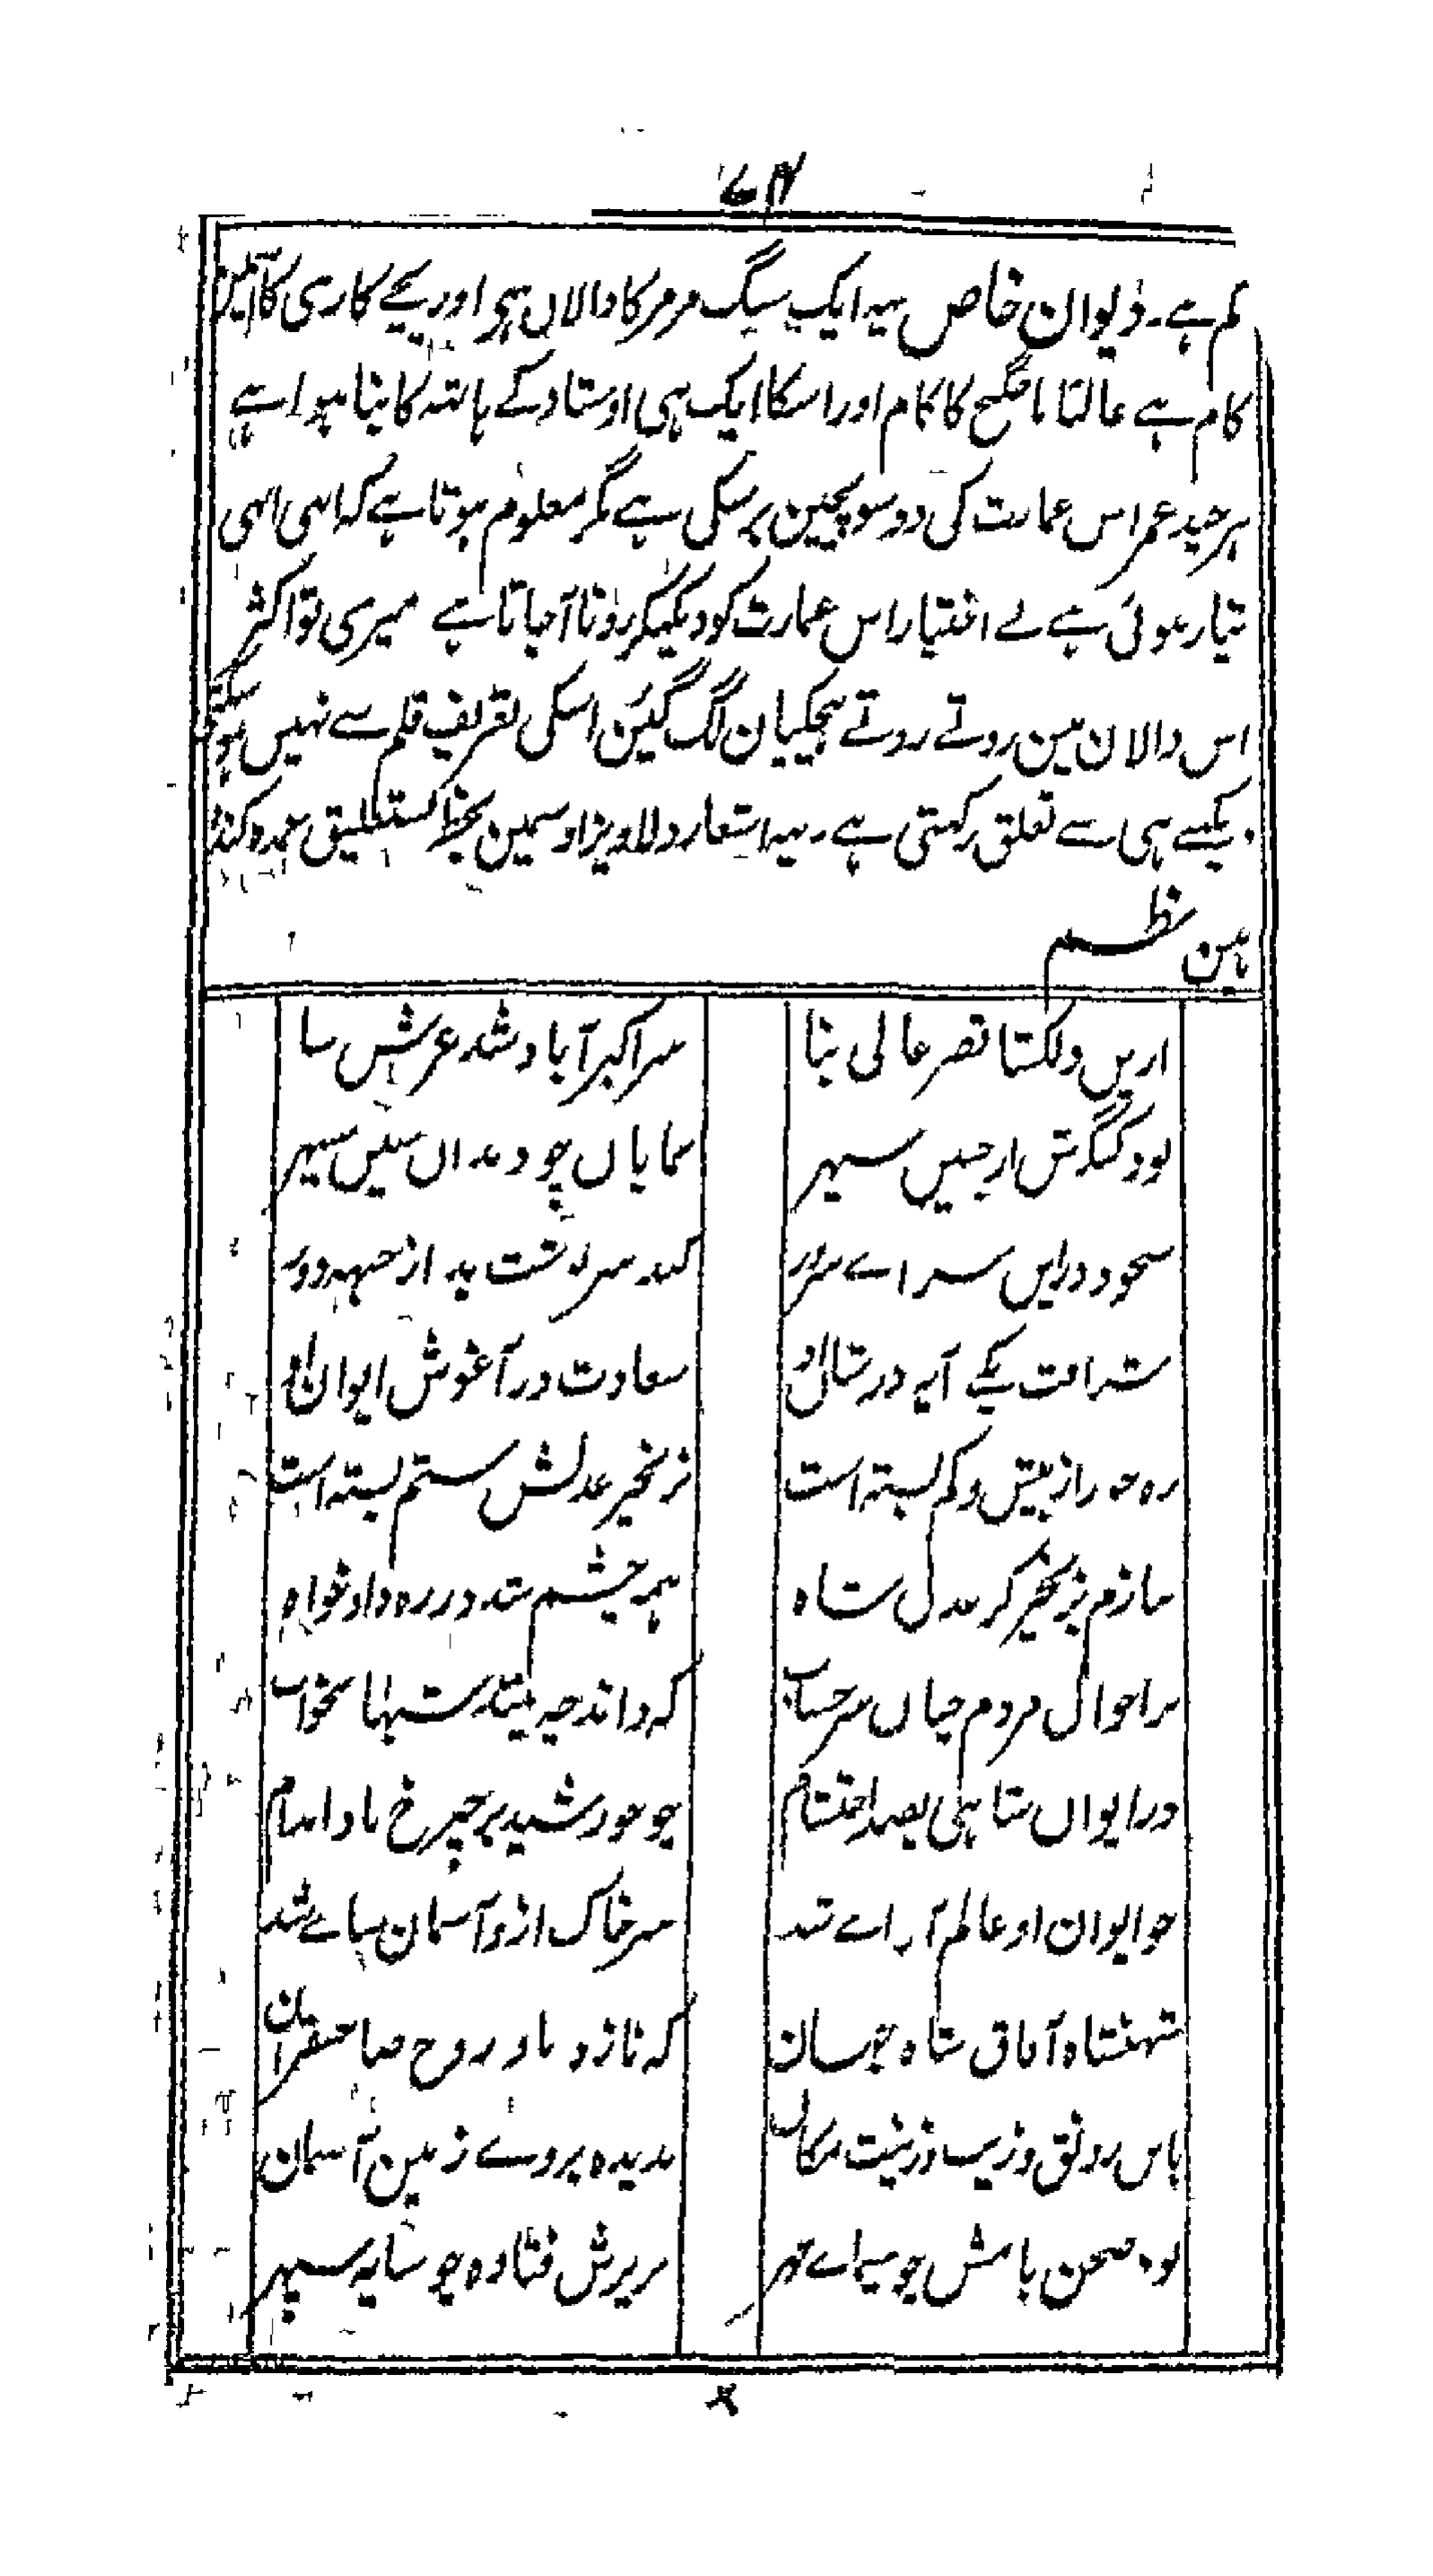 ۷۴
کم ہے۔ دیوان خاص یہ ایک سنگ مرمر کا دالان ہے اور پچے کاری کا آئین
کام ہے غالبًا باگنج کا کام اور اسکا ایک ہی اوستاد کے ہاتھ کا بنا ہوا ہے
ہر چند عمر اس عمارت کی دو سو پچپن برسکی ہے مگر معلوم ہوتا ہے کہ ابھی ابھی
تیار ہوئی ہے بے اختیار اس عمارت کو دیکھکر رونا آجاتا ہے میری تو اکثر
اس دالان مین روتے روتے ہچکیان لگ گئین اسکی تعریف قلم سے نہیں ہوسکتی
دیکھنے ہی سے تعلق رکہتی ہے۔ یہ اشعار دلاویز اوسمین بخط نستعلیق عمدہ کندہ
ہین نظم
ازیں دلکشا قصر عالی بنا
سر اکبر آباد شد عرش سا
بود کنگرش از جبیں سپہر
نمایاں چو دنداں سین سپہر
سجود درایں سرائے سرور
کند سرنوشت بد از جبہہ دور
شرافت یکے آیہ در شان او
سعادت در آغوش ایوان او
رہ جور از بیش و کم بستہ است
زنجیر عدلش ستم بستہ است
بنازم بزنجیر کز عدل شاہ
ہمہ چشم شد در رہ دادخواہ
بر احوال مردم چناں سرحساب
کہ داند چہ بینند شبہا بخواب
در ایواں شاہی بصد احتشام
چو خورشید بر چرخ بادا مدام
چو ایوان او عالم آرائے شد
سر خاک ازو آسمان سائے شد
شہنشاہ آفاق شاہ جہان
کہ نازد باو روح صاحبقران
باین رونق و زیب و زینت مکان
ندیدہ بروے زمین آسمان
بود صحن بامش چو سیمائے مہر
بزیرش فتادہ چو سایہ سپہر